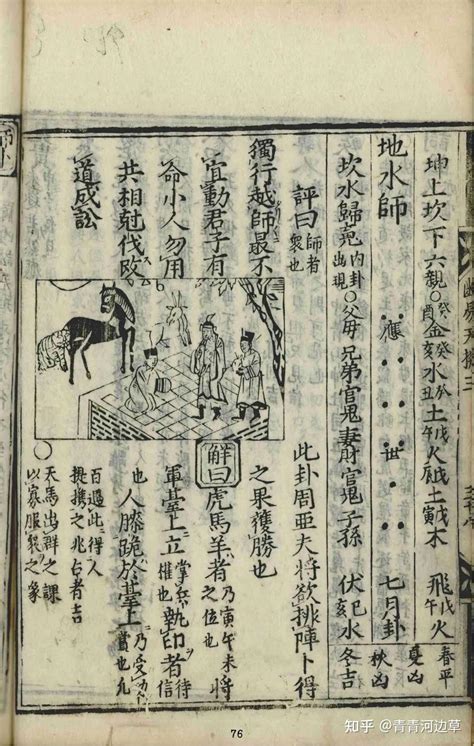 坤上坎下六親 癸酉金 癸亥水 癸丑土 戊午火 戊辰土 戊寅木 飛戊午火 春平 夏凶
地水師 應 世 七月卦 秋凶
坎水歸 內卦出現 父母 兄弟 官鬼 妻財 官鬼 子孫 伏巳亥水 冬吉
評曰 師者衆也 此卦周亞夫將欲排陣卜得
獨行越師最不 之果獲勝也
宜動君子有 解曰虎馬羊者 乃寅午未之位也 將
命小人勿用 軍臺上立 掌兵權也 執印者 待信
共相尅伐改 也 人膝跪於臺上 乃受 賞也 九
道成訟 百過此得人提攜之兆占者吉
天馬出群之課
以寡服衆之象
76
知乎 @青青河边草